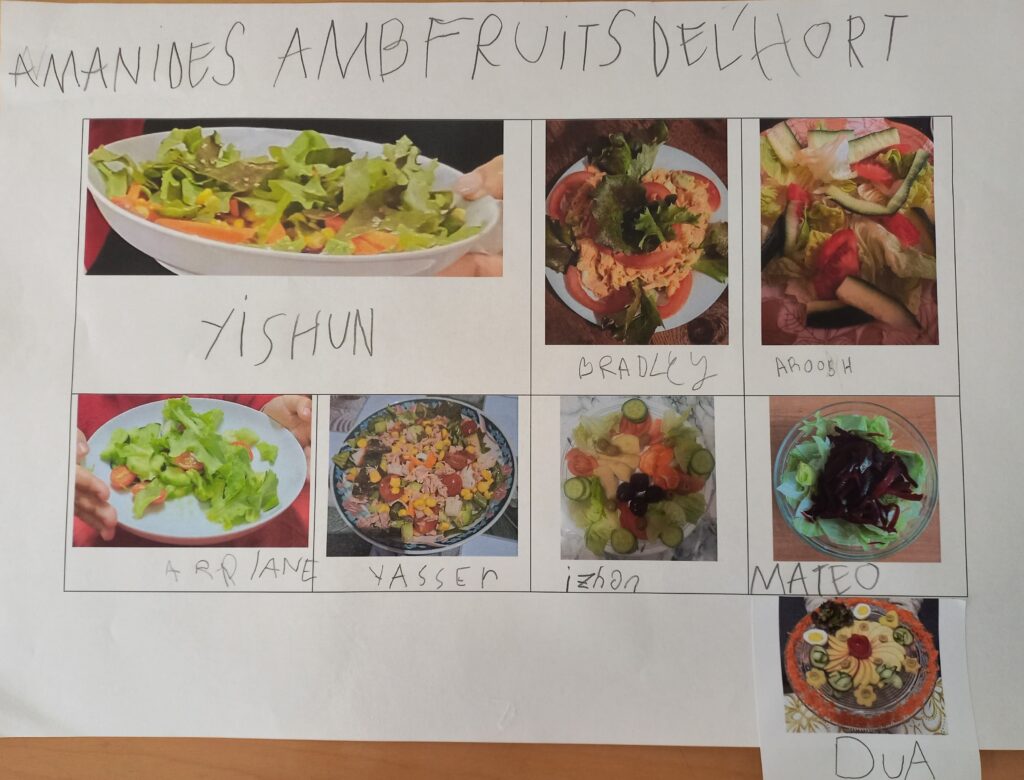 AMANIDES AMB FRUITS DE L'HORT
YISHUN
BRADLEY
AROOSH
ARRIANE
YASSER
izhan
MATEO
DUA